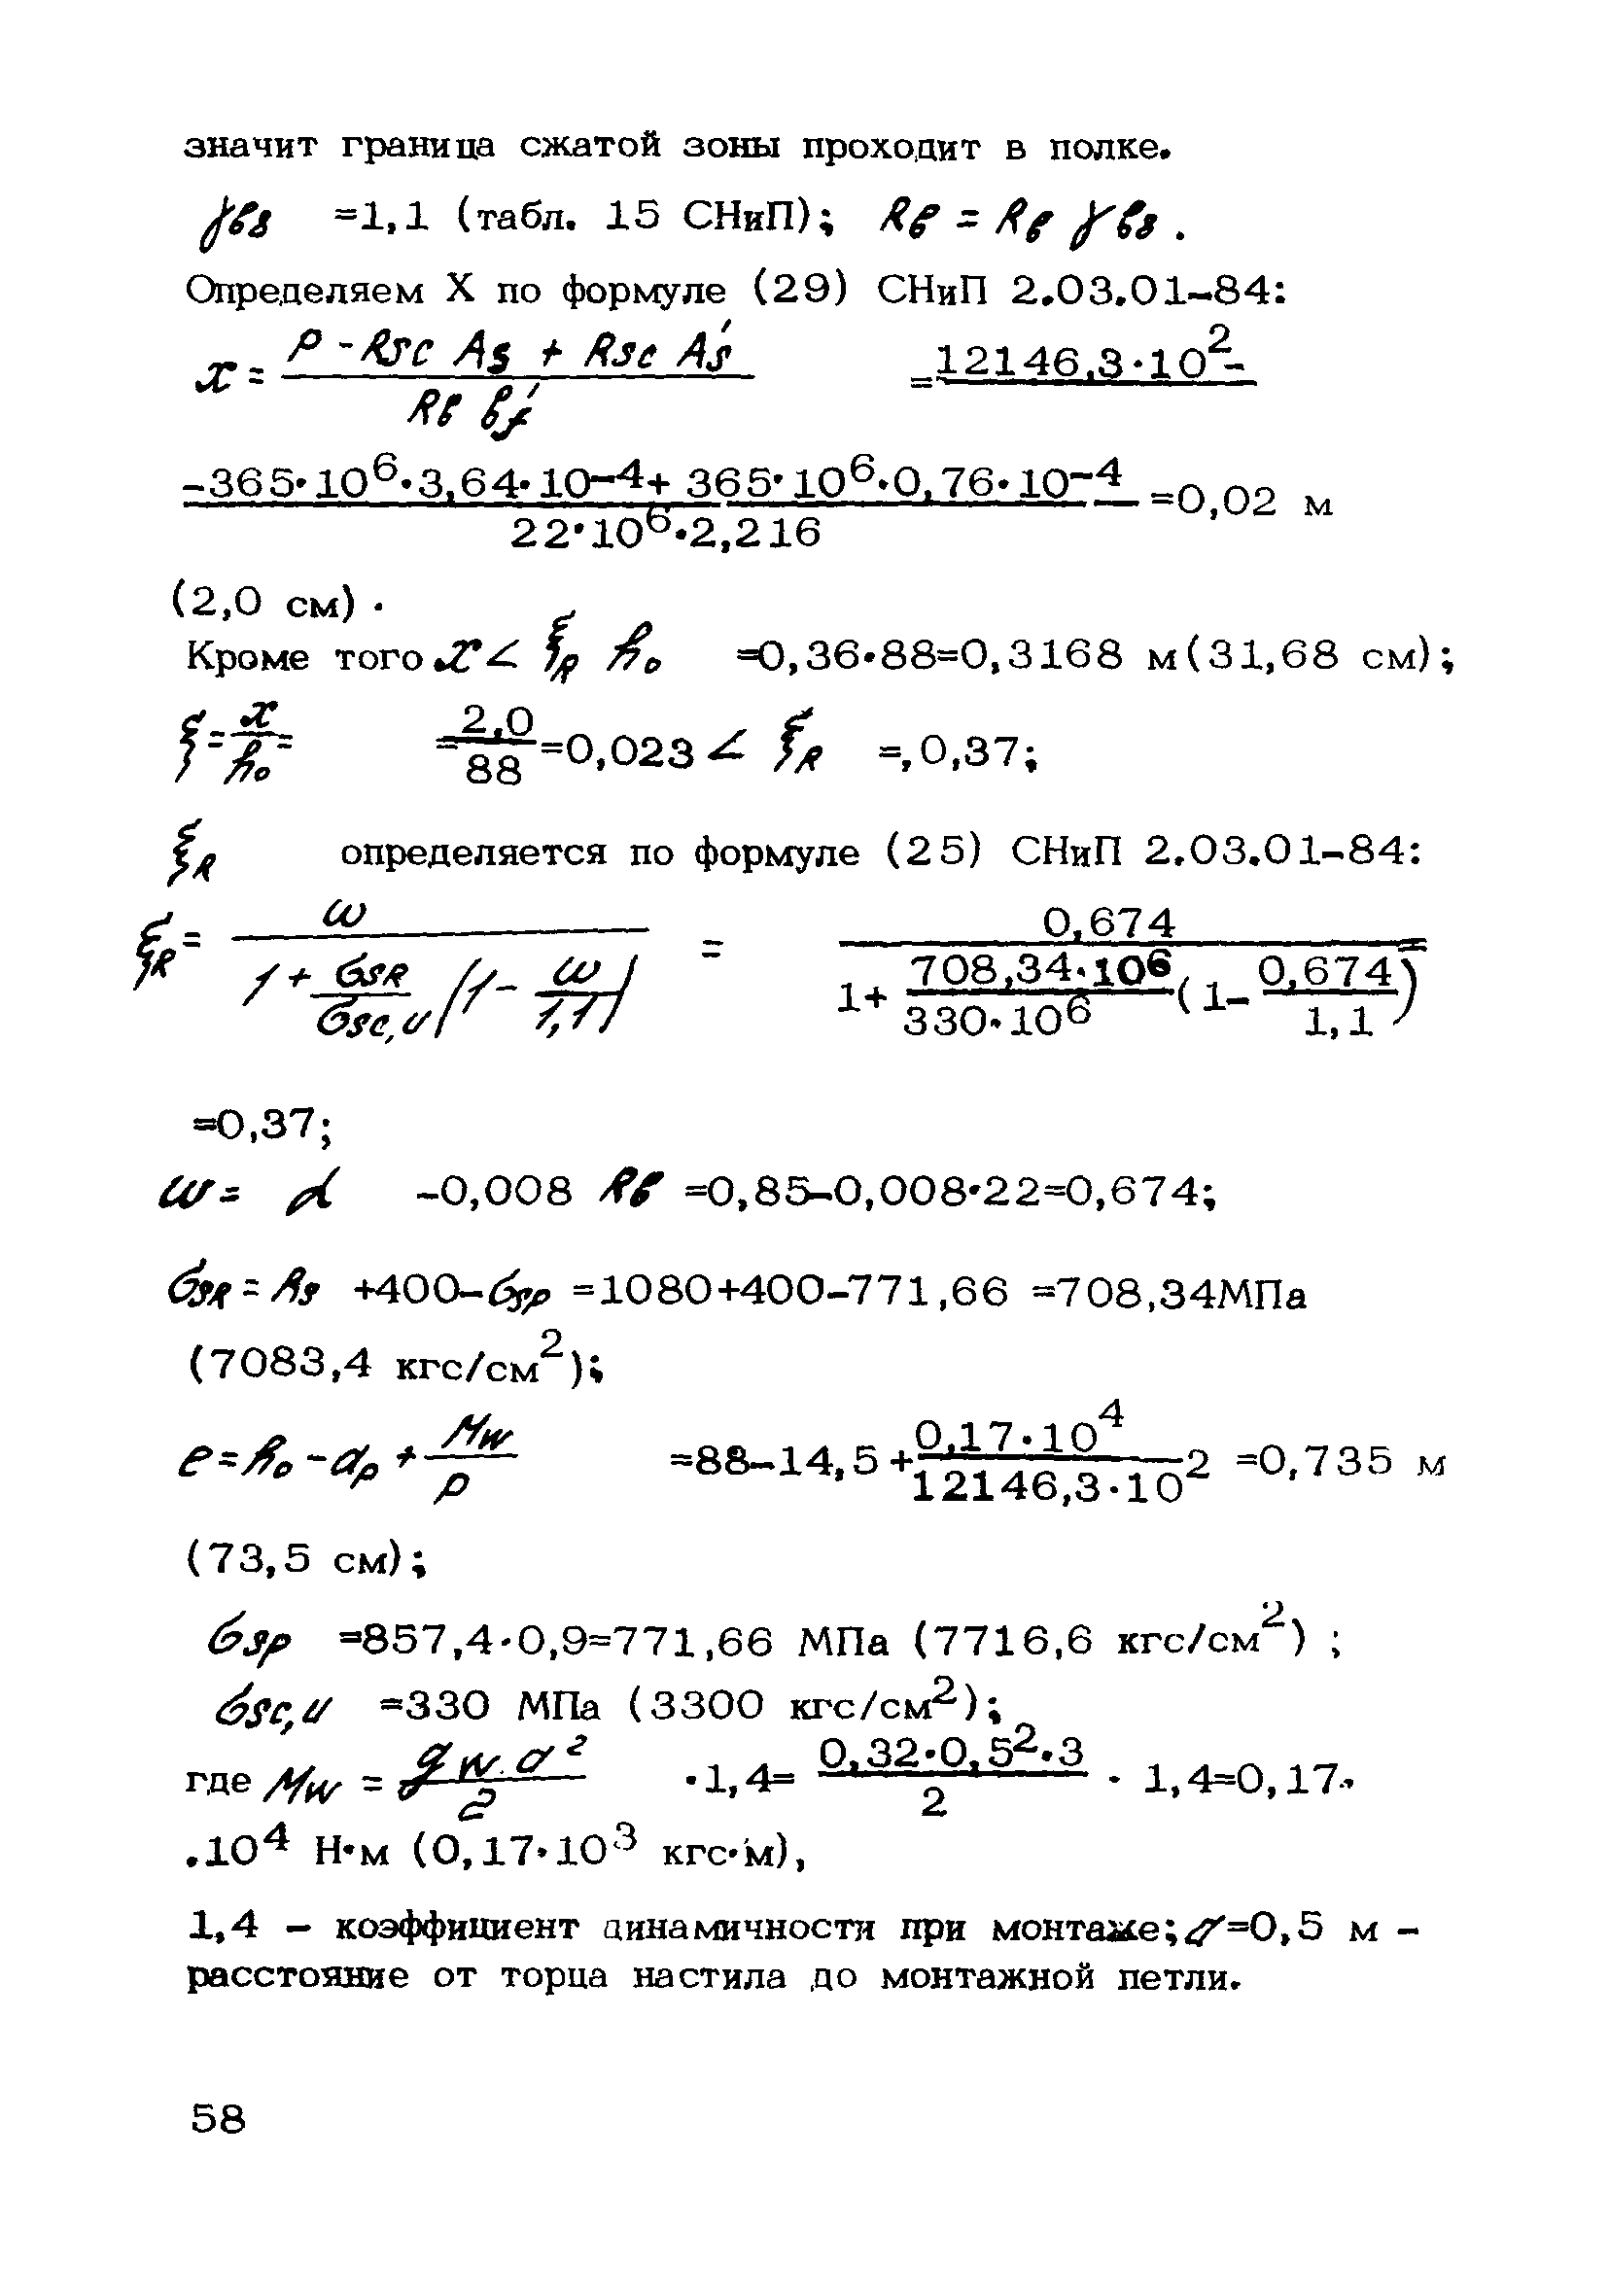 значит граница сжатой зоны проходит в полке.
γб8 =1,1 (табл. 15 СНиП); Rб = Rб γб8 .
Определяем X по формуле (29) СНиП 2.03.01-84:
x = (P - Rsc As + Rsc A's) / (Rб б'f) = 12146,3·10² -
-365·10⁶·3,64·10⁻⁴+ 365·10⁶·0,76·10⁻⁴ / 22·10⁶·2,216 =0,02 м
(2,0 см).
Кроме того x < ξR h₀ =0,36·88=0,3168 м(31,68 см);
ξ = x/h₀ = = 2,0/88 =0,023 < ξR =,0,37;
ξR определяется по формуле (25) СНиП 2.03.01-84:
ξR = ω / (1 + бSR/бsc,u (1 - ω/1,1)) = 0,674 / (1+ 708,34·10⁶/330·10⁶ (1- 0,674/1,1)) =
=0,37;
ω = α -0,008 Rб =0,85-0,008·22=0,674;
бSR = Rs +400-бsp =1080+400-771,66 =708,34МПа
(7083,4 кгс/см²);
e = h₀ - ap + Mw/P =88-14,5+ 0,17·10⁴/12146,3·10² =0,735 м
(73,5 см);
бsp =857,4·0,9=771,66 МПа (7716,6 кгс/см²) ;
бsc,u =330 МПа (3300 кгс/см²);
где Mw = gw·a²/2 ·1,4= 0,32·0,5²·3/2 · 1,4=0,17·
.10⁴ Н·м (0,17·10³ кгс·м),
1,4 - коэффициент динамичности при монтаже; a=0,5 м -
расстояние от торца настила до монтажной петли.
58